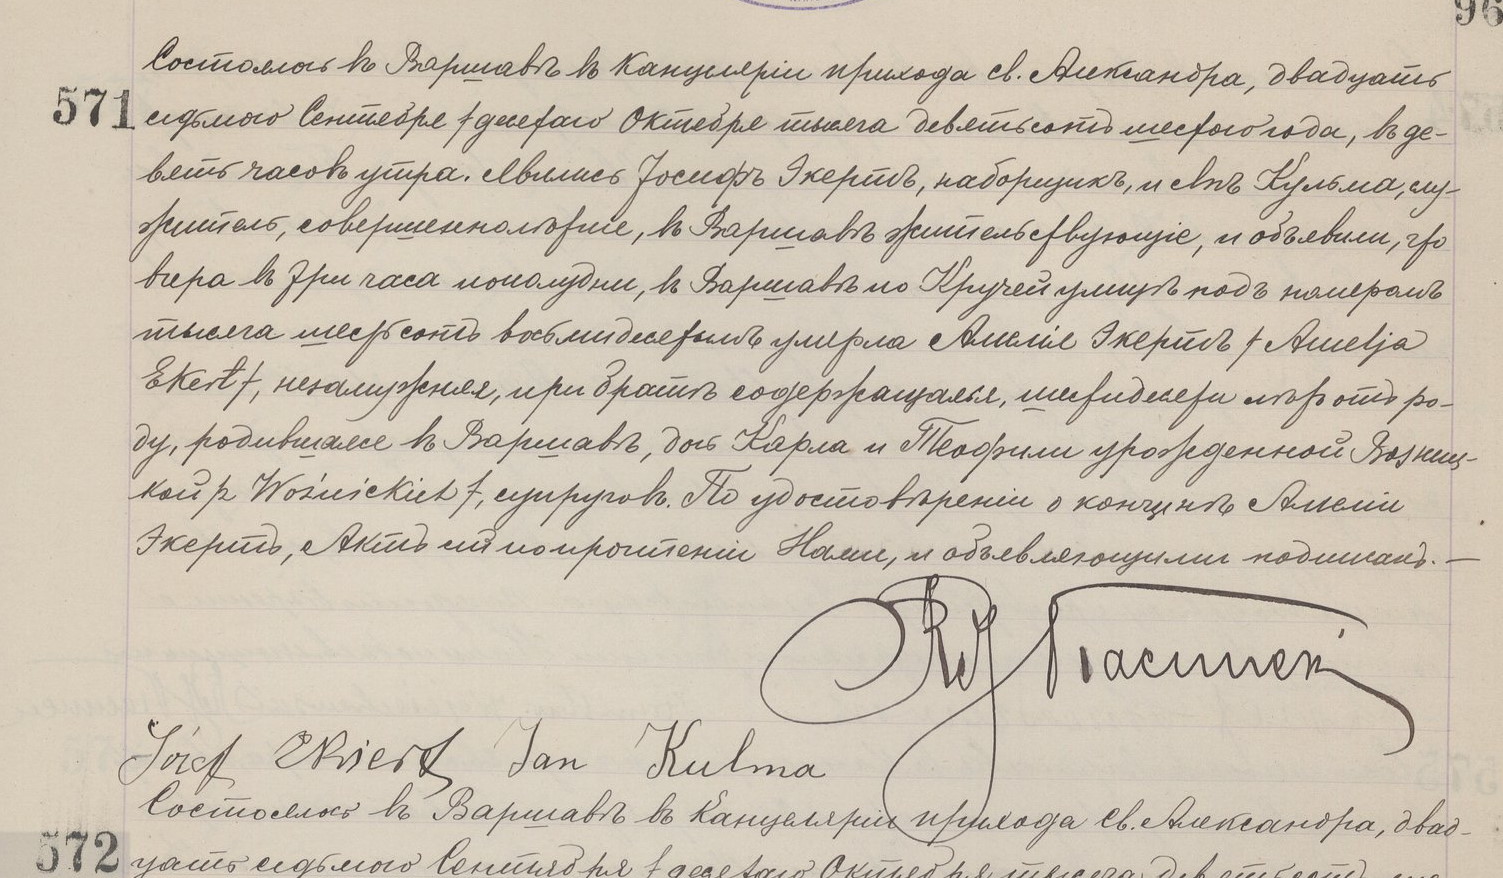 96
Состоялось въ Варшавѣ въ Канцеляріи прихода св. Александра, двадцать
571 седьмого Сентября /десятаго Октября тысяча девятьсотъ шестого года, въ де-
вять часовъ утра. Явились Іосифъ Экертъ, наборщикъ, и Янъ Кульма, слу-
житель, совершеннолѣтніе, въ Варшавѣ жительствующіе, и объявили, что
вчера въ три часа пополудни, въ Варшавѣ по Кручей улицѣ подъ номеромъ
тысяча шестьсотъ восьмидесятымъ умерла Амелія Экертъ / Amelja
Ekert /, незамужняя, при братѣ содержащаяся, шестидесяти лѣтъ отъ ро-
ду, родившаяся въ Варшавѣ, дочь Карла и Теофили урожденной Возниц-
кой / Woźnickich /, супруговъ. По удостовѣреніи о кончинѣ Амеліи
Экертъ, Актъ сей по прочтеніи Нами, и объявляющими подписанъ. —
Józef Ekiert Jan Kulma
Состоялось въ Варшавѣ въ Канцеляріи прихода св. Александра, двад-
572 цать седьмого Сентября / десятаго Октября тысяча девятьсотъ